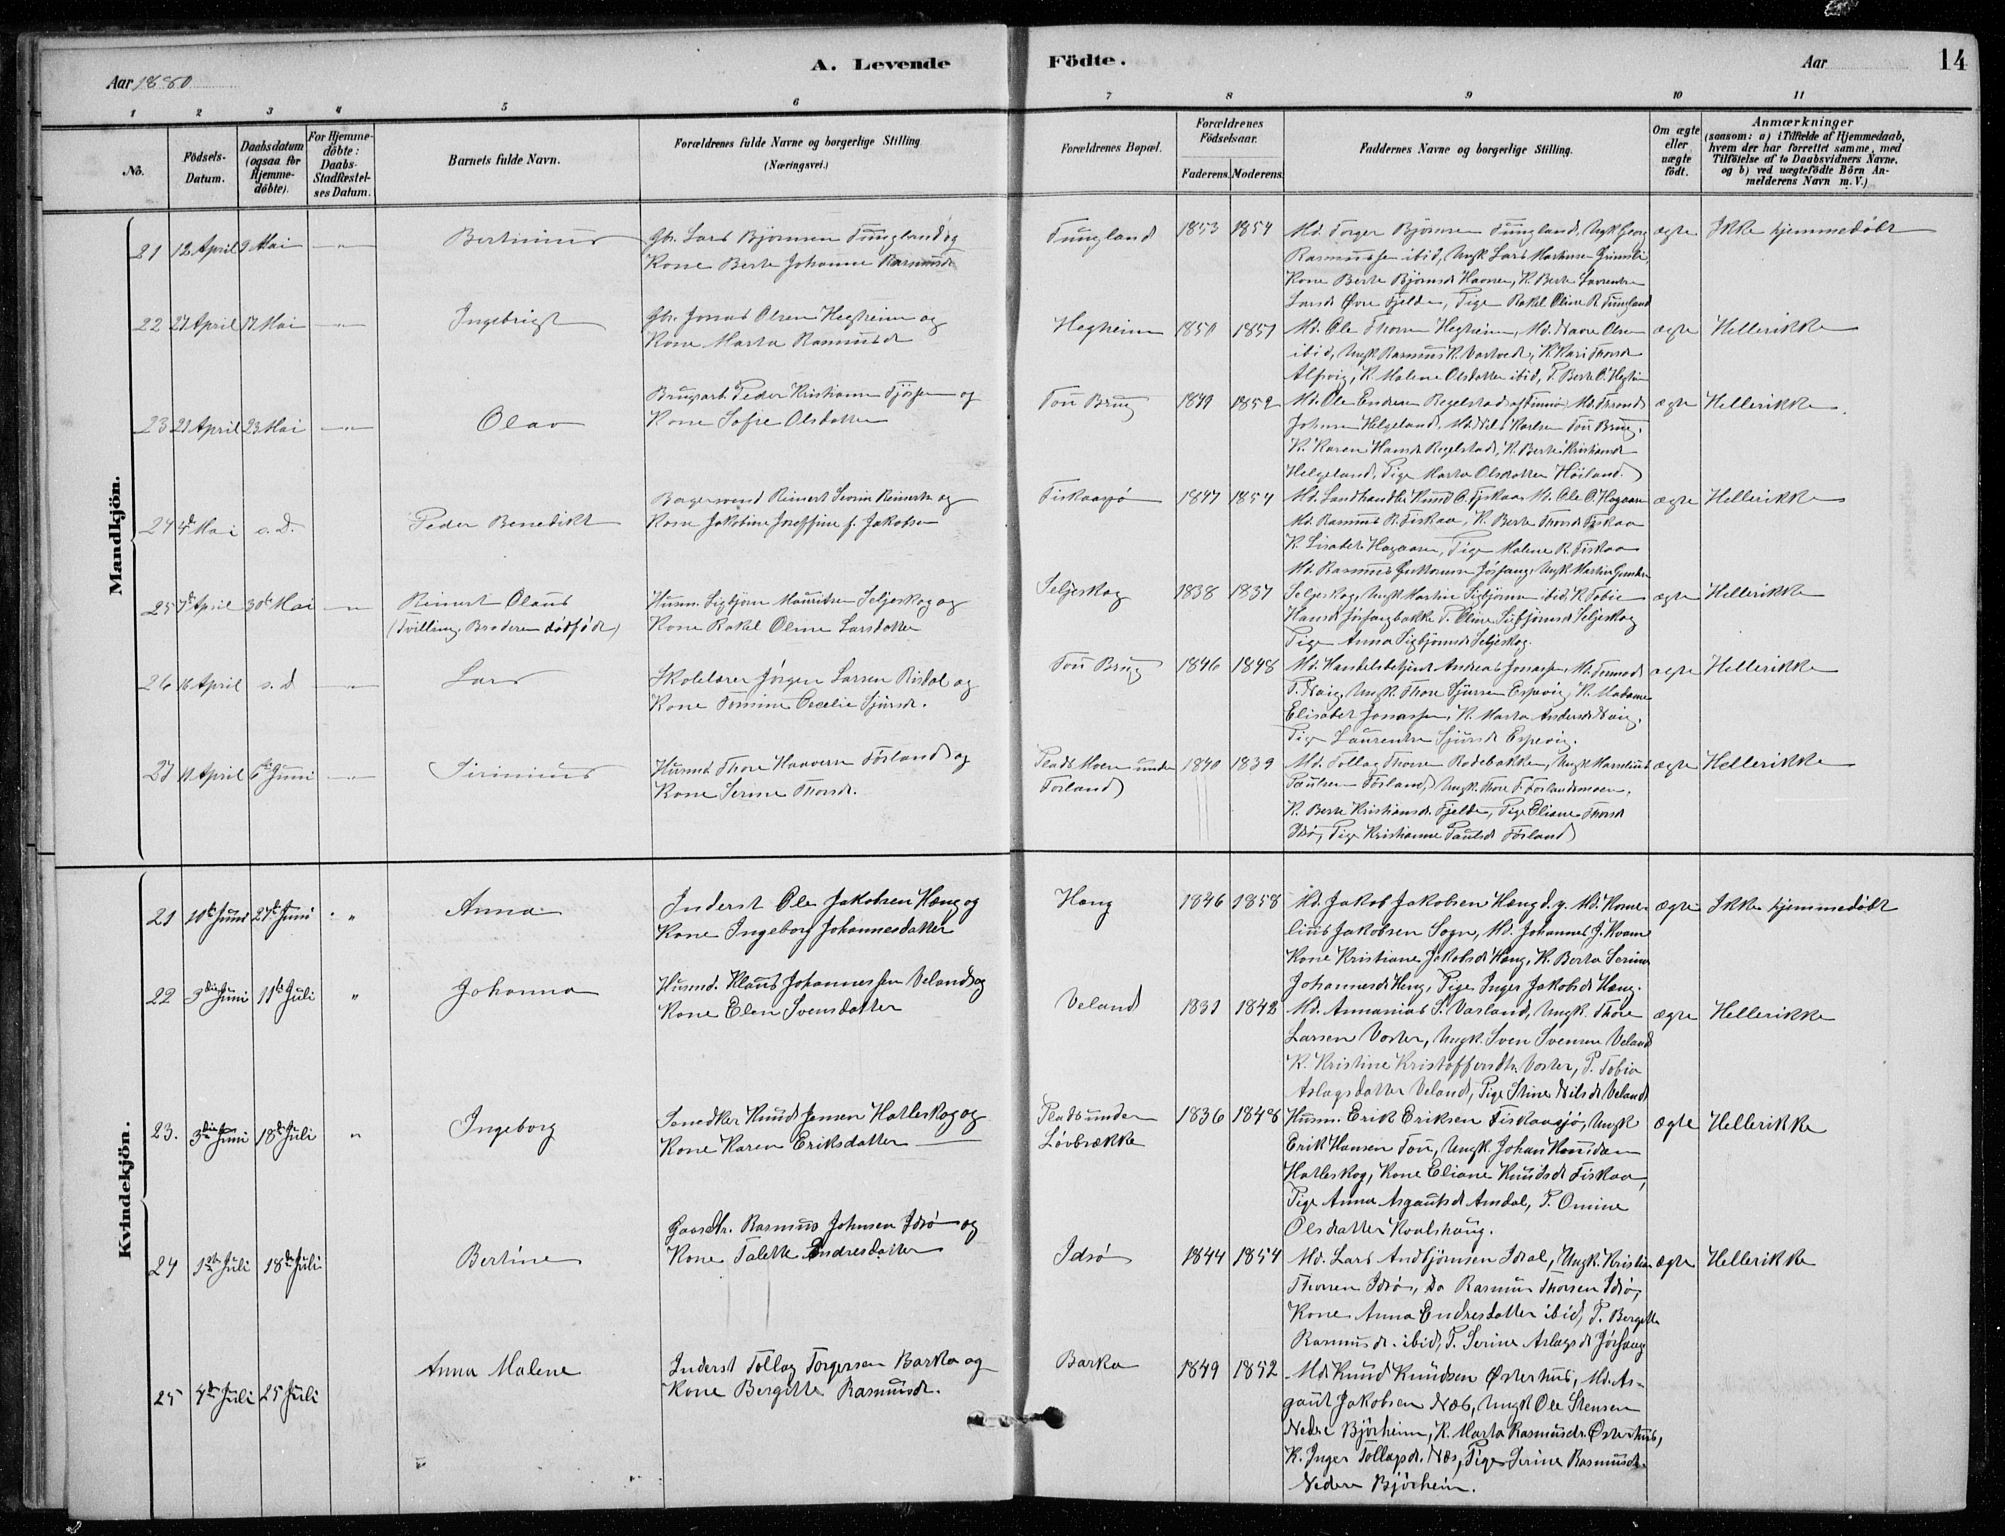 Aar 1880
A. Levende
Födte.
Aar
14
1 2 3 4 5 6 7 8 9 10 11
No.
Födsels-Datum.
Daabsdatum (ogsaa for Hjemme-döbte).
For Hjemme-döbte: Daabs-Stadfæstel-ses Datum.
Barnets fulde Navn.
Forældrenes fulde Navne og borgerlige Stilling (Næringsvei.)
Forældrenes Bopæl.
Forældrenes Födselsaar.
Faderens. Moderens.
Faddernes Navne og borgerlige Stilling.
Om ægte eller uægte födt.
Anmærkninger (saasom: a) i Tilfælde af Hjemmedaab, hvem der har forrettet samme, med Tilföielse af to Daabsvidners Navne. og b) ved uægtefödte Börn An-melderens Navn m. V.)
Mandkjön.
21 12 April 9 Mai Bertinius
Gbr. Lars Bjørnsen Tungland og
Kone Berte Johanne Rasmusdr
Tungland 1853 1854
Md. Torger Bjørnsen Tungland, Ungk Georg
Rasmussen ibid, Ungk Lars Martinsen Grimsli,
Kone Berte Bjørnsd Haavn, K. Berte Laurentse
Larsd Øvre Fjelde, Pige Rakel Oline R. Tungland
ægte Ikke hjemmedøbt
22 21 April 17 Mai Ingebrigt
Gbr. Jonas Olsen Hegheim og
Kone Marta Rasmusdr
Hegheim 1850 1857
Md. Ole Thorsen Hegheim, Md. Haave Olsen
ibid, Ungk Rasmus K. Vastvedt, K. Kari Thorsdr
Alsvig, K. Malene Olsdatter ibid, P. Berte O. Hegheim
ægte Hellerikke
23 21 April 23 Mai Olav
Brugsarb. Peder Kristiansen Tjøssem og
Kone Sofie Olsdatter
Tou Brug 1849 1852
Md. Ole Endresen Regelstad af Finnø, Md. Thrond
Johnsen Helgeland, Md. Nils Karlsen Tou Brug,
K. Karen Hansdr Regelstad, K. Berte Kristiansdr
Helgeland, Pige Marta Olsdatter Høiland.
ægte Hellerikke.
24 4de Mai s. d. Peder Benedikt
Borgersvend Reinert Severin Reinertsen og
Kone Jakobine Josefine f. Jakobsen
Fiskaasjø 1847 1854
Md. Landhandler Knud O. Fiskaa, Md. Ole O. Hagaasen
Md. Rasmus R. Fiskaa, K. Berte Thorsdr Fiskaa
K. Lisabet Hagaasen, Pige Malene R. Fiskaa
ægte Hellerikke
25 7de April 30de Mai Reinert Olaus
(Tvilling, Broderen dødfødt)
Husm. Sigbjørn Mauritsen Seljeskog og
Kone Rakel Oline Larsdatter
Seljeskog 1838 1837
Md. Rasmus Guttormsen Jøsang, Ungk Martin Gundersen
Seljeskog, Ungk Martin Sigbjørnsen ibid, K. Tobia
Hansdr Jøssangbakke, P. Oline Sigbjørnsdr Seljeskog
Pige Anna Sigbjørnsdr Seljeskog.
ægte Hellerikke
26 16 April s. d. Lars
Skolelærer Jørgen Larsen Risdal og
Kone Tomine Cecelie Sjursdr.
Tou Brug 1846 1848
Md. Handelsbetjent Andreas Jonassen, Md. Tormod
T. Naig, Ungk. Thore Sjursen Espevig, K. Madame
Elisabet Jonassen, K. Marta Andersdr Naig,
Pige Laurentse Sjursdr Espevig.
ægte Hellerikke
27 11 April 6te Juni Siriminus
Husmd Thore Haavorsen Førland og
Kone Serine Thorsdr.
Plads Moen under
Førland
1840 1839
Md. Tollag Thorsen Rødebakken, Ungk Kornelius
Paulsen Førland, Ungk. Thore T. Førlandsmoen,
K. Berte Kristiansdr Fjelde, Pige Eliane Thorsdr
Idsø, Pige Kristianne Paulsdr Førland
ægte Hellerikke
Kvindekjön.
21 10de Juni 27de Juni " Anna
Inderst Ole Jakobsen Hæng og
Kone Ingeborg Johannesdatter
Hæng 1846 1858
Md. Jakob Jakobsen Hæng d. y. Md. Korne-
lius Jakobsen Sogn, Md. Johannes J. Kvame
Kone Kristiane Jakobsdr Hæng, K. Berta Serine
Johannesdr Heng, Pige Inger Jakobsdr Hæng.
ægte Ikke hjemmedøbt
22 3die Juni 11te Juli " Johanna
Husmd. Klaus Johannessen Veland og
Kone Elen Svensdatter
Veland 1831 1842
Md. Annanias S. Vasland, Ungk. Thore
Larsen Voster, Ungk. Sven Svensen Veland
K. Kristine Kristoffersdtr. Voster, P. Tobia
Aslagsdatter Veland, Pige Stine Nilsdr Veland
ægte Hellerikke
23. 3die Juni 18de Juli " Ingeborg
Smedker Knud Jensen Hatleskog og
Kone Karen Eriksdatter
Plads under
Løvbrække
1836 1848
Husm. Erik Eriksen Fiskaasjø, Ungk
Erik Hansen Tou, Ungk. Johan Knudsen
Hatleskog, Kone Eliane Knudsdr Fiskaa,
Pige Anna Asgautsdr Amdal, P. Omine
Olsdatter Kvalshaug.
ægte Hellerikke
24 1ste Juli 18de Juli Bertine
Gaardbr. Rasmus Johnsen Idsø og
Kone Talette Endresdatter
Idsø 1844 1854
Md. Lars Andbjørnsen Idsal, Ungk. Kristian
Thorsen Idsø, Do Rasmus Thorsen Idsø,
Kone Anna Endresdatter ibid, P. Bergitte
Rasmusdr. ibid, P. Serine Aslagsdr Jøssang
ægte Hellerikke
25 4de Juli 25 Juli Anna Malene
Inderst Tollag Torgersen Barka og
Kone Bergitte Rasmusdr.
Barka 1849 1852
Md Knud Knudsen Østerhus, Md. As-
gaut Jakobsen Næs, Ungk Ole Stensen
Nedre Bjørheim, K. Marta Rasmusdr. Østerhus,
K. Inger Tollagsdr. Næs, Pige Serine Rasmusdr.
Nedre Bjørheim.